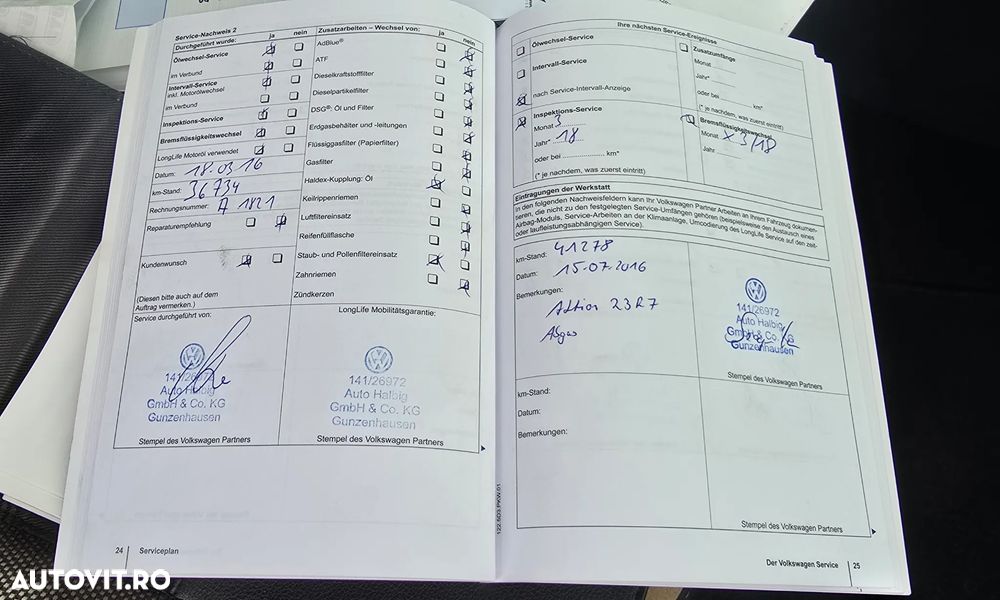 Service-Nachweis 2
Durchgeführt wurde: ja nein
Ölwechsel-Service
im Verbund
Intervall-Service
inkl. Motorölwechsel
im Verbund
Inspektions-Service
Bremsflüssigkeitswechsel
LongLife Motoröl verwendet
Datum: 18.03.16
km-Stand: 36734
Rechnungsnummer: A 1821
Reparaturempfehlung
Kundenwunsch
(Diesen bitte auch auf dem
Auftrag vermerken.)
Zusatzarbeiten – Wechsel von: ja nein
AdBlue®
ATF
Dieselkraftstofffilter
Dieselpartikelfilter
DSG®: Öl und Filter
Erdgasbehälter und -leitungen
Flüssiggasfilter (Papierfilter)
Gasfilter
Haldex-Kupplung: Öl
Keilrippenriemen
Luftfiltereinsatz
Reifenfüllflasche
Staub- und Pollenfiltereinsatz
Zahnriemen
Zündkerzen
Service durchgeführt von:
141/26972
Auto Halbig
GmbH & Co. KG
Gunzenhausen
Stempel des Volkswagen Partners
LongLife Mobilitätsgarantie:
141/26972
Auto Halbig
GmbH & Co. KG
Gunzenhausen
Stempel des Volkswagen Partners
24 Serviceplan
122.5D3.PKW.01
Ihre nächsten Service-Ereignisse
Ölwechsel-Service
Intervall-Service
nach Service-Intervall-Anzeige
Inspektions-Service
Monat 3
Jahr* 18
oder bei ............ km*
(* je nachdem, was zuerst eintritt)
Zusatzumfänge
Monat
Jahr*
oder bei ............ km*
(* je nachdem, was zuerst eintritt)
Bremsflüssigkeitswechsel
Monat x 3/18
Jahr
Eintragungen der Werkstatt
In den folgenden Nachweisfeldern kann Ihr Volkswagen Partner Arbeiten an Ihrem Fahrzeug dokumen-
tieren, die nicht zu den festgelegten Service-Umfängen gehören (beispielsweise den Austausch eines
Airbag-Moduls, Service-Arbeiten an der Klimaanlage, Umcodierung des LongLife Service auf den zeit-
oder laufleistungsabhängigen Service).
km-Stand: 41278
Datum: 15-07-2016
Bemerkungen:
Aktion 23R7
Abgas
141/26972
Auto Halbig
GmbH & Co. KG
Gunzenhausen
Stempel des Volkswagen Partners
km-Stand:
Datum:
Bemerkungen:
Stempel des Volkswagen Partners
Der Volkswagen Service 25
AUTOVIT.RO